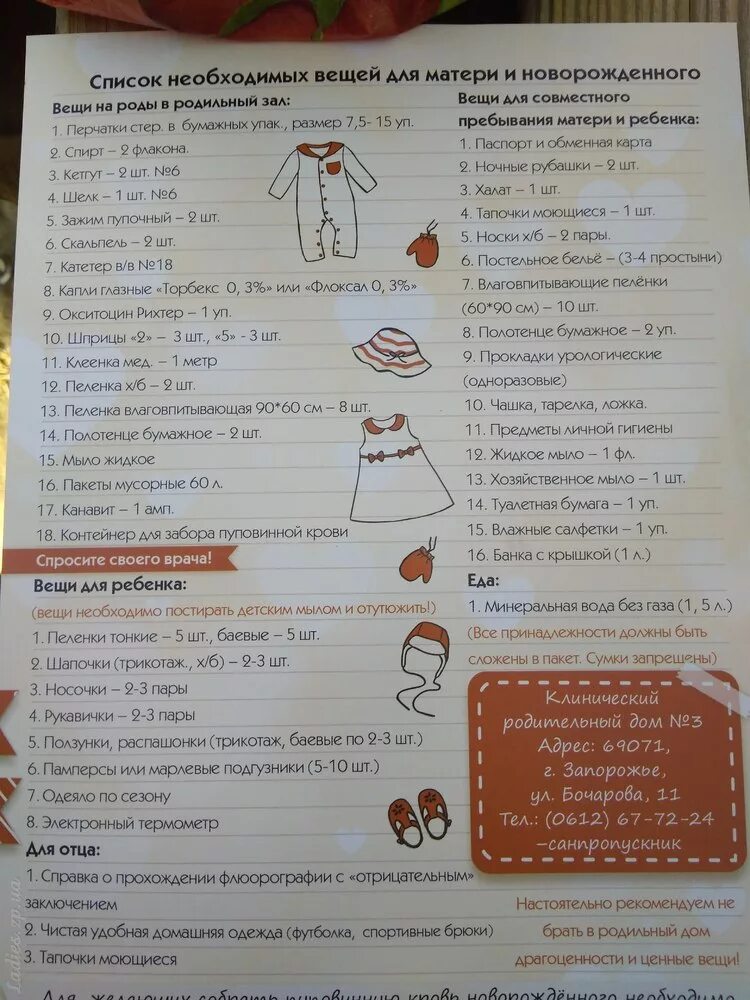 Список необходимых вещей для матери и новорожденного
Вещи на роды в родильный зал:
1. Перчатки стер. в бумажных упак., размер 7,5- 15 уп.
2. Спирт – 2 флакона.
3. Кетгут – 2 шт. №6
4. Шелк – 1 шт. №6
5. Зажим пупочный – 2 шт.
6. Скальпель – 2 шт.
7. Катетер в/в №18
8. Капли глазные «Торбекс 0, 3%» или «Флоксал 0, 3%»
9. Окситоцин Рихтер – 1 уп.
10. Шприцы «2» – 3 шт., «5» - 3 шт.
11. Клеенка мед. – 1 метр
12. Пеленка х/б – 2 шт.
13. Пеленка влаговпитывающая 90*60 см – 8 шт.
14. Полотенце бумажное – 2 шт.
15. Мыло жидкое
16. Пакеты мусорные 60 л.
17. Канавит – 1 амп.
18. Контейнер для забора пуповинной крови
Спросите своего врача!
Вещи для ребенка:
(вещи необходимо постирать детским мылом и отутюжить!)
1. Пеленки тонкие – 5 шт., баевые – 5 шт.
2. Шапочки (трикотаж., х/б) – 2-3 шт.
3. Носочки – 2-3 пары
4. Рукавички – 2-3 пары
5. Ползунки, распашонки (трикотаж, баевые по 2-3 шт.)
6. Памперсы или марлевые подгузники (5-10 шт.)
7. Одеяло по сезону
8. Электронный термометр
Для отца:
1. Справка о прохождении флюорографии с «отрицательным»
заключением
2. Чистая удобная домашняя одежда (футболка, спортивные брюки)
3. Тапочки моющиеся
Вещи для совместного
пребывания матери и ребенка:
1. Паспорт и обменная карта
2. Ночные рубашки – 2 шт.
3. Халат – 1 шт.
4. Тапочки моющиеся – 1 шт.
5. Носки х/б – 2 пары.
6. Постельное бельё – (3-4 простыни)
7. Влаговпитывающие пелёнки
(60*90 см) – 10 шт.
8. Полотенце бумажное – 2 уп.
9. Прокладки урологические
(одноразовые)
10. Чашка, тарелка, ложка.
11. Предметы личной гигиены
12. Жидкое мыло – 1 фл.
13. Хозяйственное мыло – 1 шт.
14. Туалетная бумага – 1 уп.
15. Влажные салфетки – 1 уп.
16. Банка с крышкой (1 л.)
Еда:
1. Минеральная вода без газа (1, 5 л.)
(Все принадлежности должны быть
сложены в пакет. Сумки запрещены)
Клинический
родительный дом №3
Адрес: 69071,
г. Запорожье,
ул. Бочарова, 11
Тел.: (0612) 67-72-24
–санпропускник
Настоятельно рекомендуем не
брать в родильный дом
драгоценности и ценные вещи!
Для желающих собрать пуповинную кровь новорождённого необходимо
Ladies.zp.ua